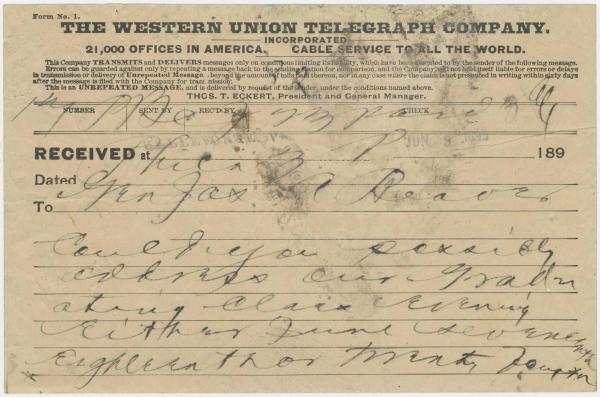 Form No. 1.
THE WESTERN UNION TELEGRAPH COMPANY.
INCORPORATED
21,000 OFFICES IN AMERICA. CABLE SERVICE TO ALL THE WORLD.
This Company TRANSMITS and DELIVERS messages only on conditions limiting its liability, which have been assented to by the sender of the following message.
Errors can be guarded against only by repeating a message back to the sending station for comparison, and the Company will not hold itself liable for errors or delays
in transmission or delivery of Unrepeated Message, beyond the amount of tolls paid thereon, nor in any case where the claim is not presented in writing within sixty days
after the message is filed with the Company for transmission.
This is an UNREPEATED MESSAGE, and is delivered by request of the sender, under the conditions named above.
THOS. T. ECKERT, President and General Manager.
NUMBER SENT BY REC'D BY CHECK
RECEIVED at 189
Dated
To Gen Jas A Beaver
Could you possibly
address our Gradu
ating Class Evening
Either June Seventh
Eighteenth or Twenty Fourth